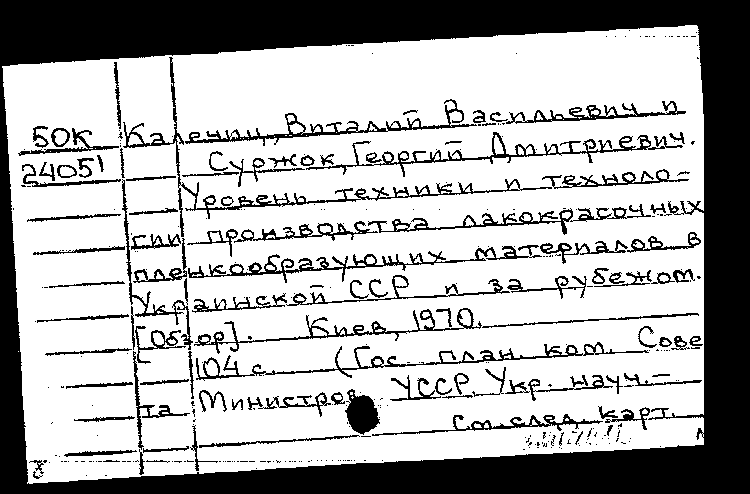 50К Каленич, Виталий Васильевич и
24051 Суржок, Георгий Дмитриевич.
Уровень техники и техноло-
гии производства лакокрасочных
пленкообразующих материалов в
Украинской ССР и за рубежом.
[Обзор]. Киев, 1970.
104 с. (Гос. план. ком. Сове
та Министров УССР. Укр. науч.-
См. след. карт.